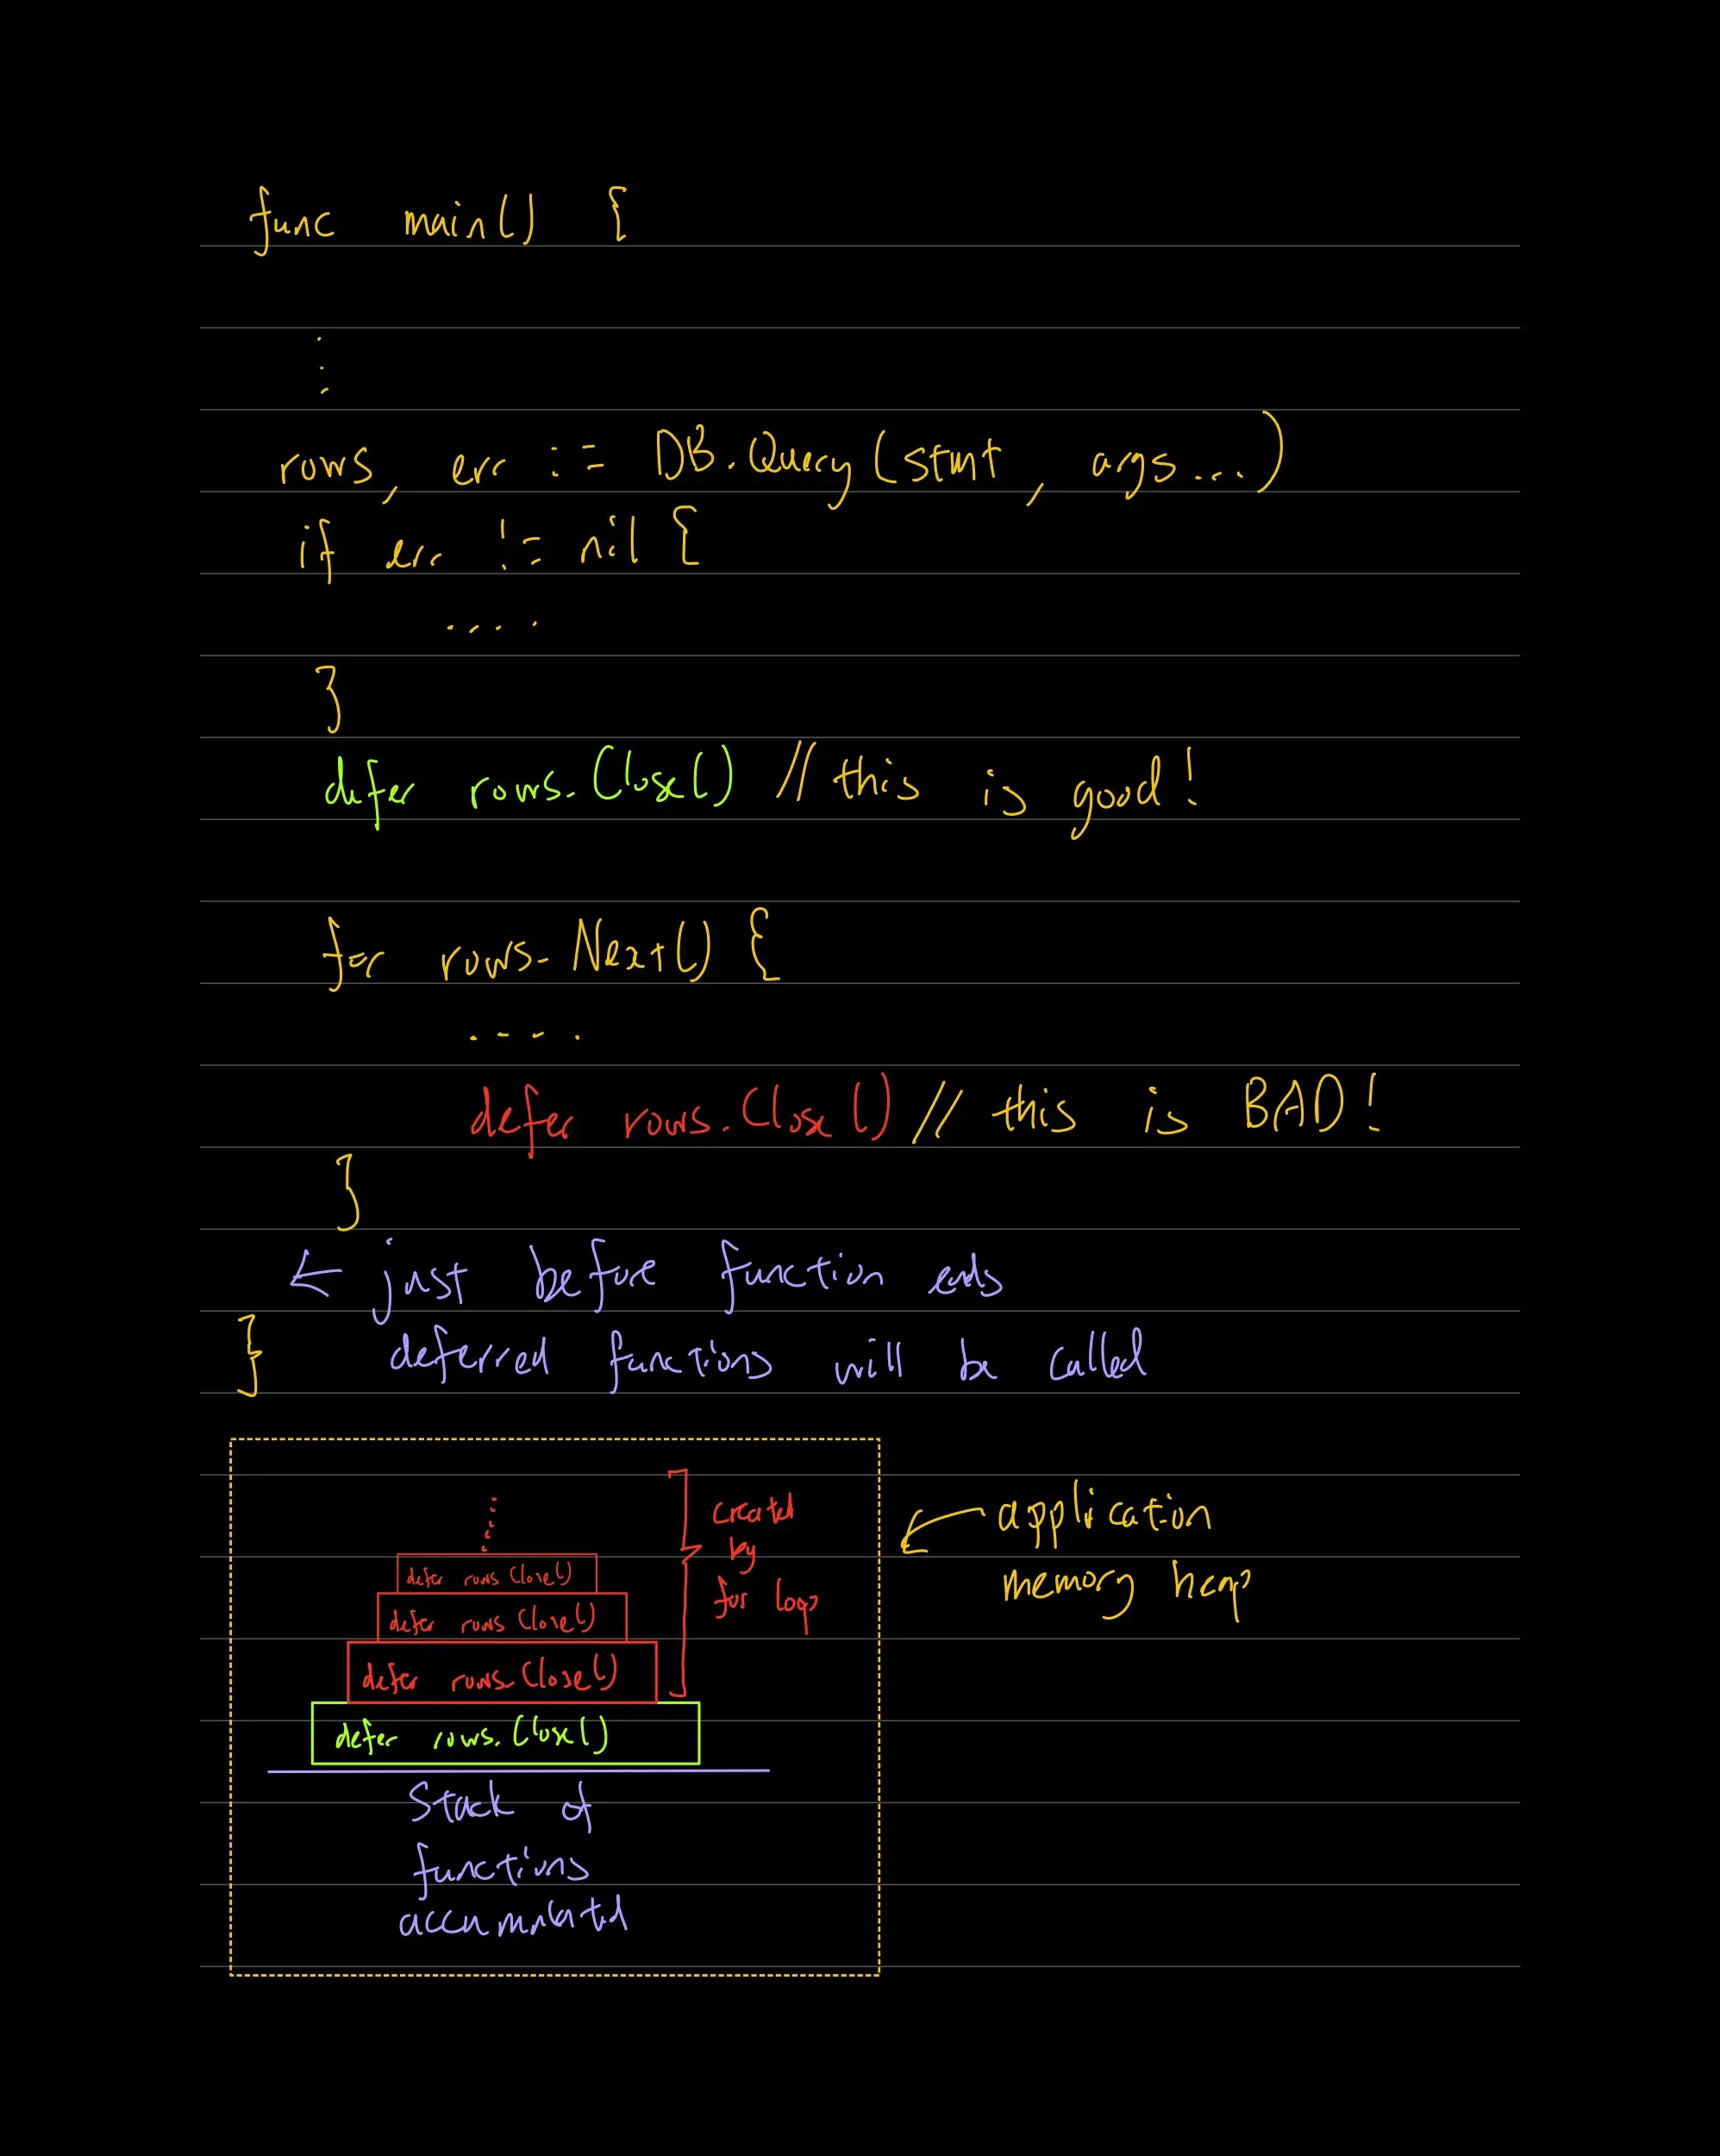 func main() {
⋮
rows, err := DB.Query(stmt, args...)
if err != nil {
....
}
defer rows.Close() // this is good!
for rows.Next() {
....
defer rows.Close() // this is BAD!
}
← just before function ends
} deferred functions will be called
⋮
defer rows Close()
defer rows Close()
defer rows.Close()
defer rows.Close()
created
by
for loop
application
memory heap
Stack of
functions
accumulated